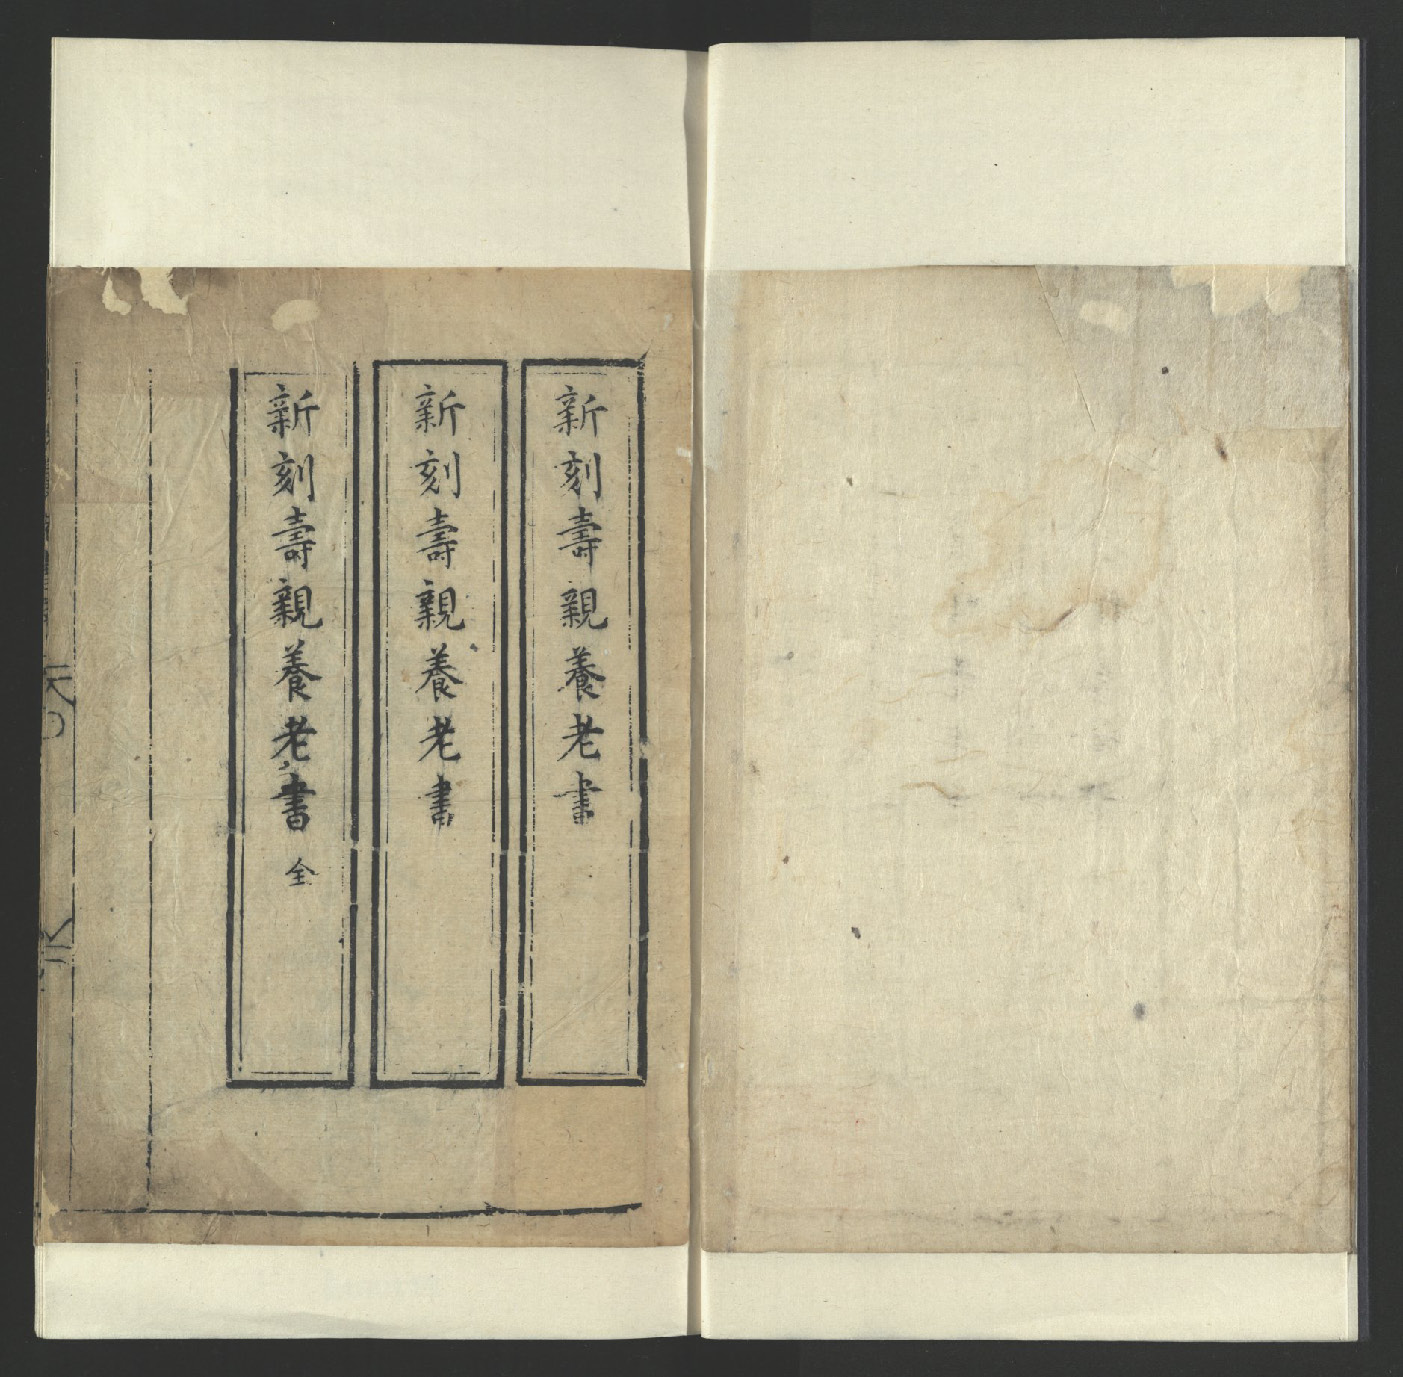 新刻壽親養老書
新刻壽親養老書
新刻壽親養老書 全